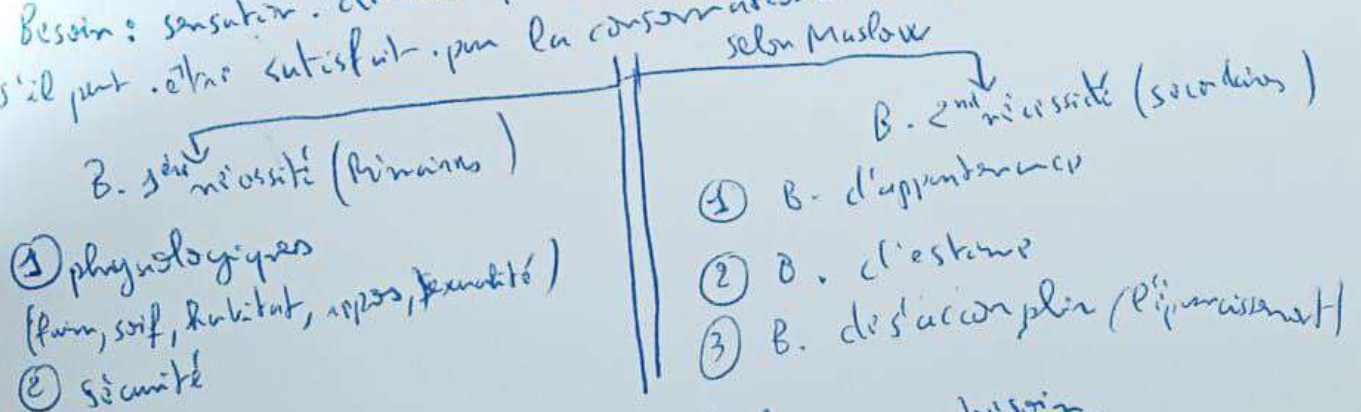 Besoin : sensation.
s'il peut être satisfait par la consommation
selon Maslow
B. 1ère nécessité (Primaires)
① physiologiques
(faim, soif, habitat, repos, sexualité)
② sécurité
B. 2nd nécessité (secondaires)
① B. d'appartenance
② B. d'estime
③ B. de s'accomplir (l'épanouissement)
besoin